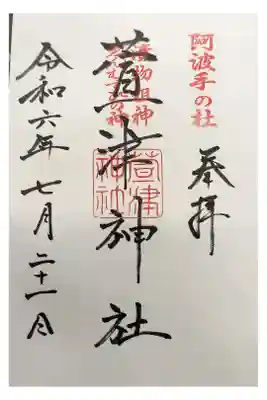 阿波手の杜
奉拝
萱津神社
萱津
神社
令和六年七月二十一日